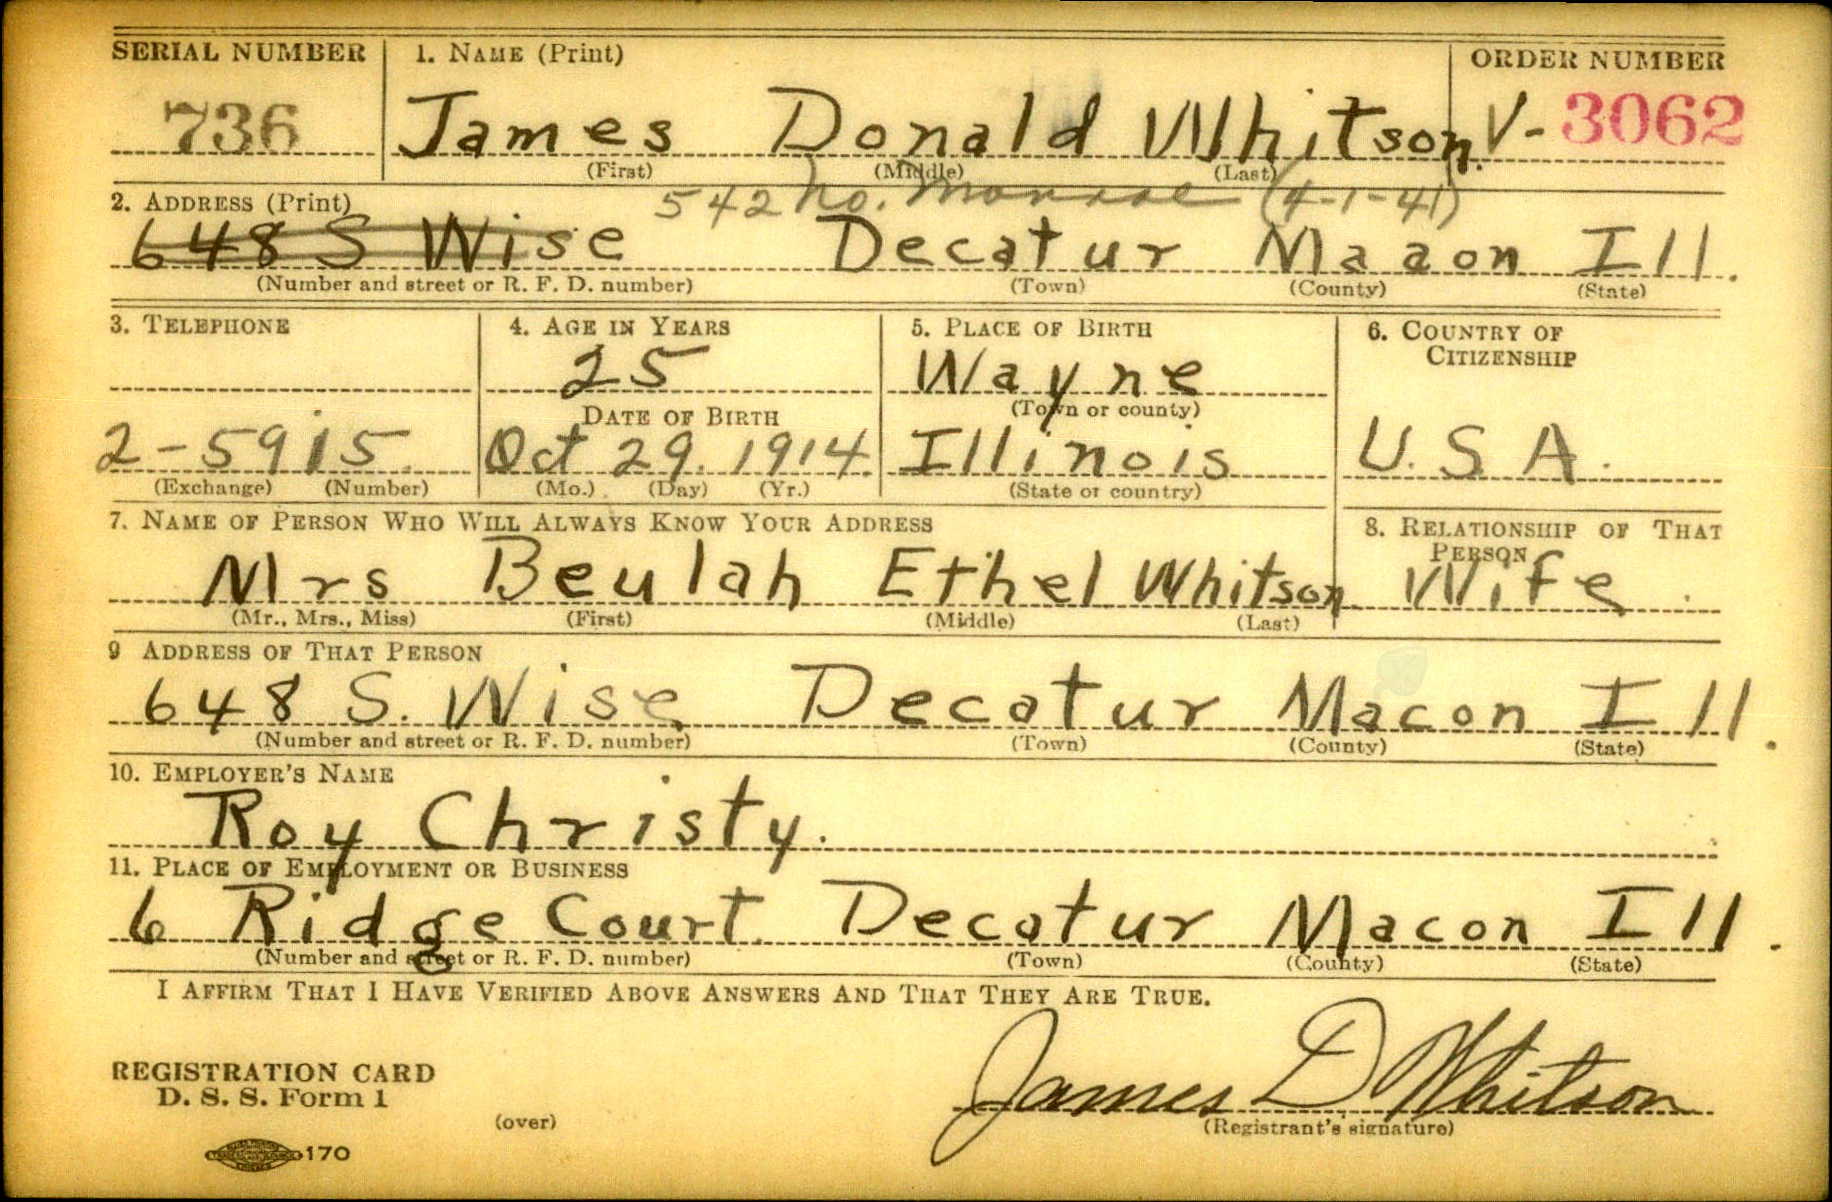 SERIAL NUMBER 1. NAME (Print) ORDER NUMBER
736 James Donald Whitson. V-3062
(First) (Middle) (Last)
542 No. Monroe (4-1-41)
2. ADDRESS (Print)
648 S Wise Decatur Maaon Ill.
(Number and street or R. F. D. number) (Town) (County) (State)
3. TELEPHONE 4. AGE IN YEARS 5. PLACE OF BIRTH 6. COUNTRY OF
CITIZENSHIP
25 Wayne
DATE OF BIRTH (Town or county)
2-5915. Oct 29. 1914 Illinois U.S.A.
(Exchange) (Number) (Mo.) (Day) (Yr.) (State or country)
7. NAME OF PERSON WHO WILL ALWAYS KNOW YOUR ADDRESS 8. RELATIONSHIP OF THAT
PERSON
Mrs Beulah Ethel Whitson Wife.
(Mr., Mrs., Miss) (First) (Middle) (Last)
9 ADDRESS OF THAT PERSON
648 S. Wise Decatur Macon Ill.
(Number and street or R. F. D. number) (Town) (County) (State)
10. EMPLOYER'S NAME
Roy Christy.
11. PLACE OF EMPLOYMENT OR BUSINESS
6 Ridge Court Decatur Macon Ill.
(Number and street or R. F. D. number) (Town) (County) (State)
I AFFIRM THAT I HAVE VERIFIED ABOVE ANSWERS AND THAT THEY ARE TRUE.
REGISTRATION CARD
D. S. S. Form 1
James D Whitson
(over) (Registrant's signature)
170